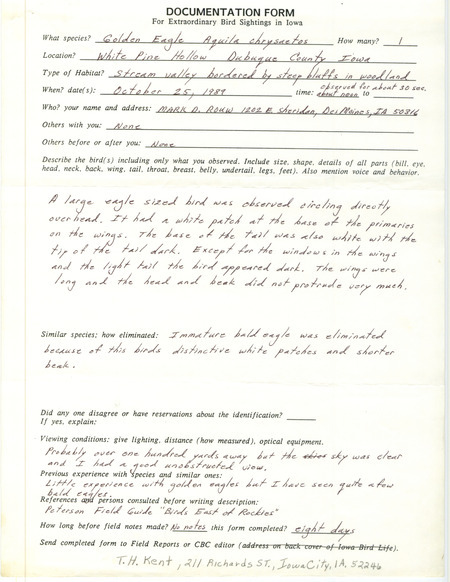 DOCUMENTATION FORM
For Extraordinary Bird Sightings in Iowa
What species? Golden Eagle Aquila chrysaetos How many? 1
Location? White Pine Hollow Dubuque County Iowa
Type of Habitat? Stream valley bordered by steep bluffs in woodland
When? date(s): October 25, 1989 time: about noon to observed for about 30 sec.
Who? your name and address: MARK D. ROUW 1202 E. Sheridan, Des Moines, IA 50316
Others with you: None
Others before or after you: None
Describe the bird(s) including only what you observed. Include size, shape, details of all parts (bill, eye,
head, neck, back, wing, tail, throat, breast, belly, undertail, legs, feet). Also mention voice and behavior.
A large eagle sized bird was observed circling directly
overhead. It had a white patch at the base of the primaries
on the wings. The base of the tail was also white with the
tip of the tail dark. Except for the windows in the wings
and the light tail the bird appeared dark. The wings were
long and the head and beak did not protrude very much.
Similar species; how eliminated: Immature bald eagle was eliminated
because of this birds distinctive white patches and shorter
beak.
Did any one disagree or have reservations about the identification?
If yes, explain:
Viewing conditions: give lighting, distance (how measured), optical equipment.
Probably over one hundred yards away but the sky was clear
and I had a good unobstructed view.
Previous experience with species and similar ones:
Little experience with golden eagles but I have seen quite a few
bald eagles.
References and persons consulted before writing description:
Peterson Field Guide "Birds East of Rockies"
How long before field notes made? No notes this form completed? eight days
Send completed form to Field Reports or CBC editor (address on back cover of Iowa Bird Life).
T.H. Kent, 211 Richards ST., Iowa City, IA. 52246